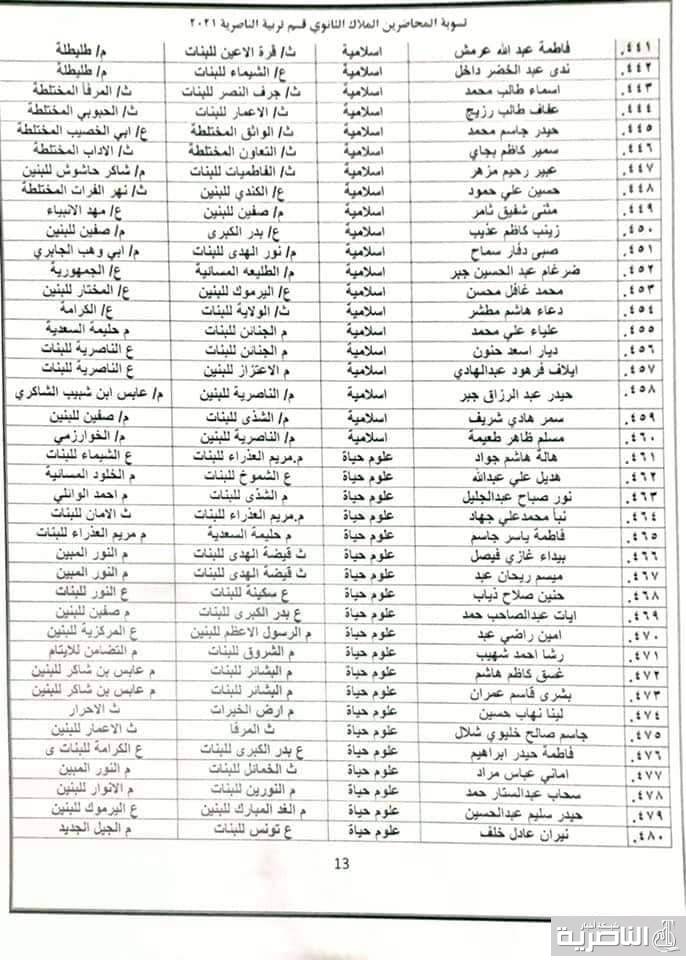 تسوية المحاضرين الملاك الثانوي قسم تربية الناصرية ٢٠٢١
٤٤١. فاطمة عبد الله عرمش اسلامية ث/ قرة الاعين للبنات م/ طليطلة
٤٤٢. ندى عبد الخضر داخل اسلامية ع/ الشيماء للبنات م/ طليطلة
٤٤٣. اسماء طالب محمد اسلامية ث/ جرف النصر للبنات ث/ المرفأ المختلطة
٤٤٤. عفاف طالب رزيج اسلامية ث/ الاعمار للبنات ث/ الحبوبي المختلطة
٤٤٥. حيدر جاسم محمد اسلامية ث/ الواثق المختلطة ع/ ابي الخصيب المختلطة
٤٤٦. سمير كاظم بجاي اسلامية ث/ التعاون المختلطة ث/ الاداب المختلطة
٤٤٧. عبير رحيم مزهر اسلامية ث/ الفاطميات للبنات م/ شاكر حاشوش للبنين
٤٤٨. حسين علي حمود اسلامية ع/ الكندي للبنين ث/ نهر الفرات المختلطة
٤٤٩. مثنى شفيق ثامر اسلامية م/ صفين للبنين ع/ مهد الانبياء
٤٥٠. زينب كاظم عذيب اسلامية ع/ بدر الكبرى م/ صفين للبنين
٤٥١. صبى دفار سماح اسلامية م/ نور الهدى للبنات م/ ابي وهب الجابري
٤٥٢. ضرغام عبد الحسين جبر اسلامية م/ الطليعه المسائية ع/ الجمهورية
٤٥٣. محمد غافل محسن اسلامية ع/ اليرموك للبنين ع/ المختار للبنين
٤٥٤. دعاء هاشم مطشر اسلامية ث/ الولاية للبنات ع/ الكرامة
٤٥٥. علياء علي محمد اسلامية م الجنائن للبنات م حليمة السعدية
٤٥٦. ديار اسعد حنون اسلامية م الجنائن للبنات ع الناصرية للبنات
٤٥٧. ايلاف فرهود عبدالهادي اسلامية م الاعتزاز للبنين ع الناصرية للبنات
٤٥٨. حيدر عبد الرزاق جبر اسلامية م/ الناصرية للبنين م/ عابس ابن شبيب الشاكري
٤٥٩. سمر هادي شريف اسلامية م/ الشذى للبنات م/ صفين للبنين
٤٦٠. مسلم ظاهر طعيمة اسلامية م/ الناصرية للبنين م/ الخوارزمي
٤٦١. هالة هاشم جواد علوم حياة م.مريم العذراء للبنات ع الشيماء للبنات
٤٦٢. هديل علي عبدالله علوم حياة ع الشموخ للبنات م الخلود المسائية
٤٦٣. نور صباح عبدالجليل علوم حياة م الشذى للبنات م احمد الوائلي
٤٦٤. نبأ محمدعلي جهاد علوم حياة م.مريم العذراء للبنات ث الامان للبنات
٤٦٥. فاطمة ياسر جاسم علوم حياة م حليمة السعدية م مريم العذراء للبنات
٤٦٦. بيداء غازي فيصل علوم حياة ث قيضة الهدى للبنات م النور المبين
٤٦٧. ميسم ريحان عبد علوم حياة ث قيضة الهدى للبنات م النور المبين
٤٦٨. حنين صلاح ذياب علوم حياة ع سكينة للبنات ع النور للبنات
٤٦٩. ايات عبدالصاحب حمد علوم حياة ع بدر الكبرى للبنات م صفين للبنين
٤٧٠. امين راضي عبد علوم حياة م الرسول الاعظم للبنين ع المركزية للبنين
٤٧١. رشا احمد شهيب علوم حياة م الشروق للبنات م التضامن للايتام
٤٧٢. غسق كاظم هاشم علوم حياة م البشائر للبنات م عابس بن شاكر للبنين
٤٧٣. بشرى قاسم عمران علوم حياة م البشائر للبنات م عابس بن شاكر للبنين
٤٧٤. لينا نهاب حسين علوم حياة م ارض الخيرات ث الاحرار
٤٧٥. جاسم صالح خليوي شلال علوم حياة ث المرفا ث الاعمار للبنين
٤٧٦. فاطمة حيدر ابراهيم علوم حياة ع بدر الكبرى للبنات ع الكرامة للبنات ى
٤٧٧. اماني عباس مراد علوم حياة ث الخمائل للبنات م النور المبين
٤٧٨. سحاب عبدالستار حمد علوم حياة م النورين للبنات م الانوار للبنين
٤٧٩. حيدر سليم عبدالحسين علوم حياة م الغد المبارك للبنين ع اليرموك للبنين
٤٨٠. نيران عادل خلف علوم حياة ع تونس للبنات م الجيل الجديد
13
شبكة اخبار
الناصرية